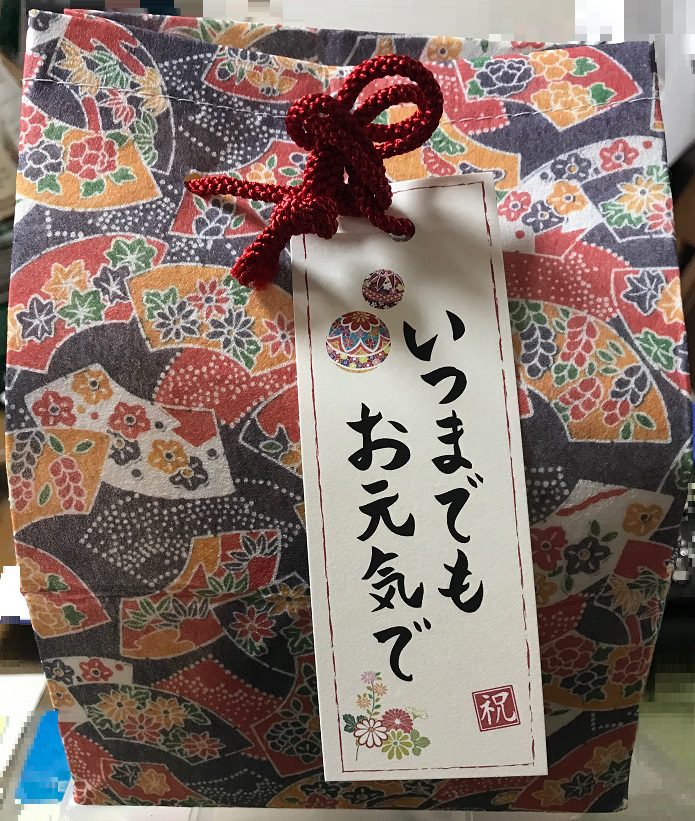 いつまでも
お元気で
祝